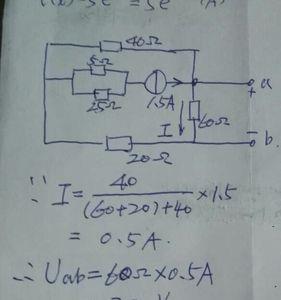 40Ω
5Ω
25Ω
1.5A
a
+
I
60Ω
−
b
20Ω
∵ I = 40 / (60+20)+40 × 1.5
= 0.5A.
∴ Uab = 60Ω × 0.5A